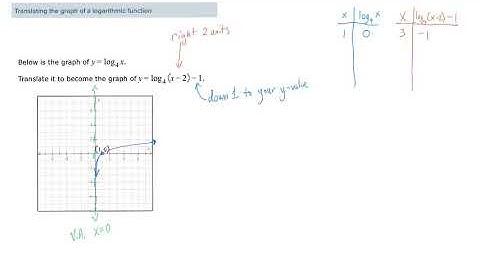 Translating the graph of a logarithmic function
right 2 units
Below is the graph of y=log₄x.
Translate it to become the graph of y=log₄(x−2)−1.
down 1 to your y-value
(1,0)
V.A. x=0
x log₄x
1 0
x log₄(x-2)-1
3 -1